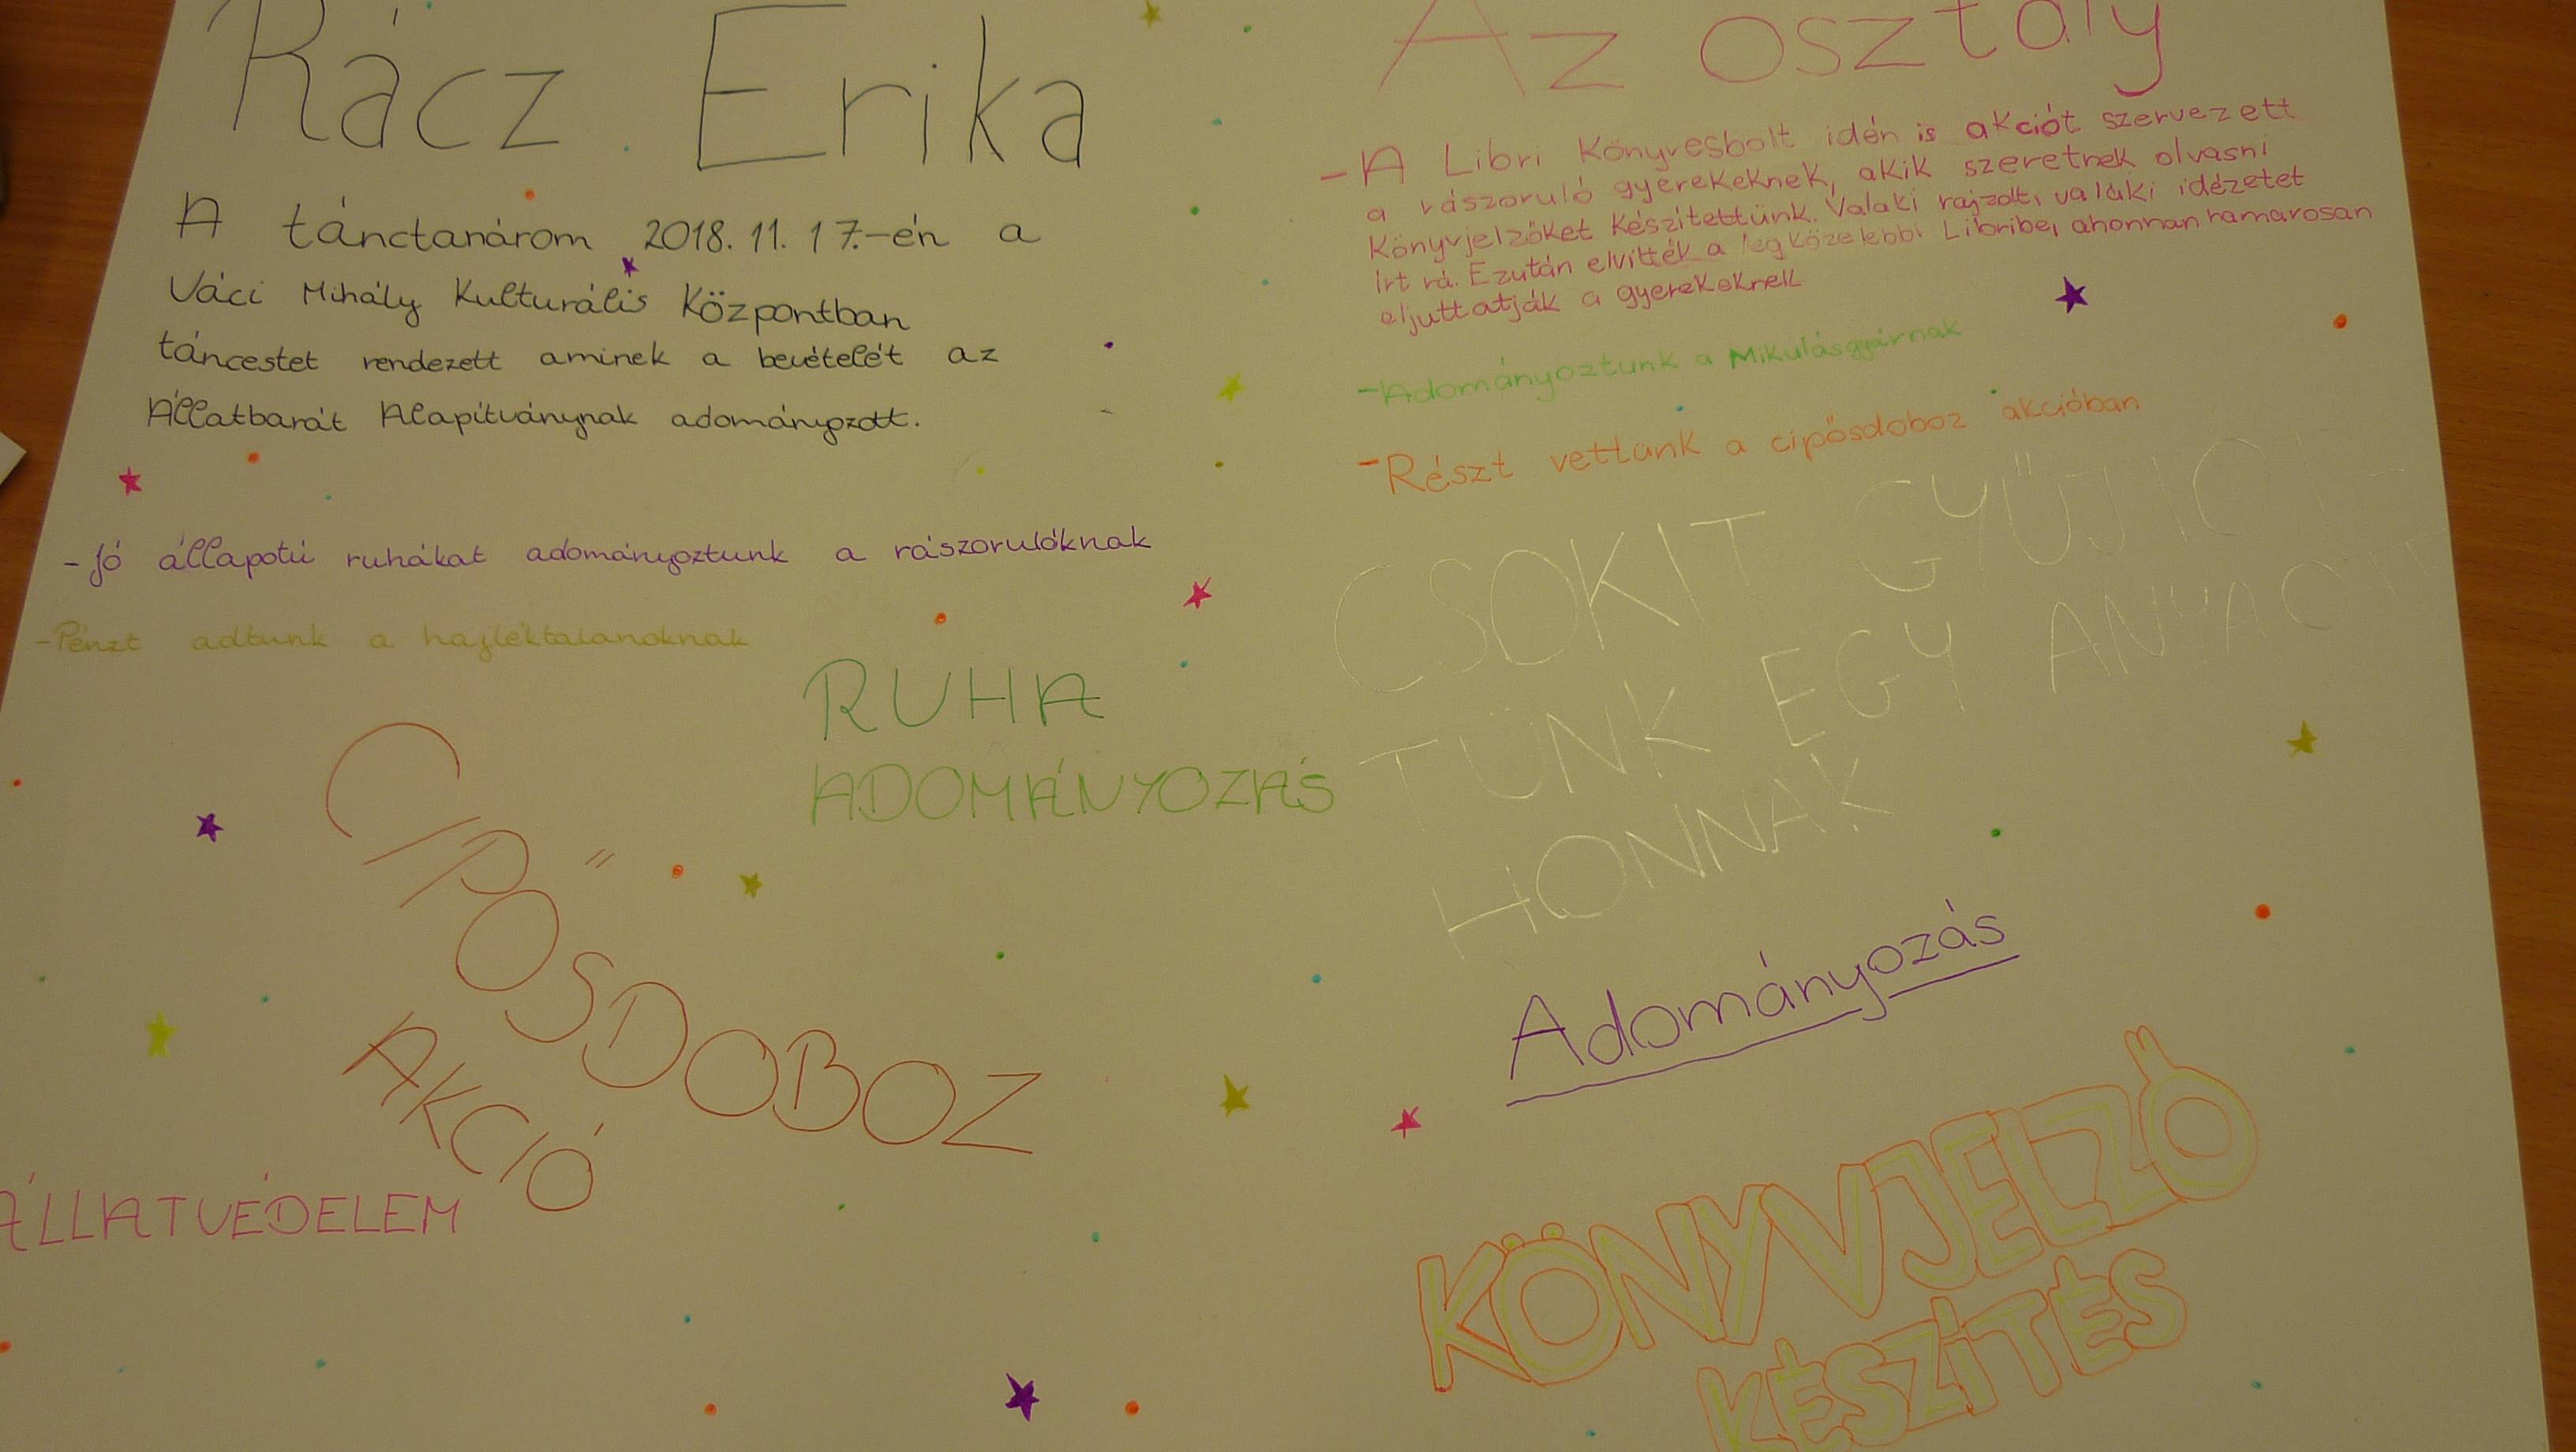 Rácz Erika
A tánctanárom 2018. 11. 17.-én a
Váci Mihály Kulturális Központban
táncestet rendezett aminek a bevételét az
Állatbarát Alapítványnak adományozott.
-Jó állapotú ruhákat adományoztunk a rászorulóknak
-Pénzt adtunk a hajléktalanoknak
RUHA
ADOMÁNYOZÁS
CIPŐSDOBOZ
AKCIÓ
ÁLLATVÉDELEM
Az osztály
-A Libri Könyvesbolt idén is akciót szervezett
a rászoruló gyerekeknek, akik szeretnek olvasni
Könyvjelzőket készítettünk. Valaki rajzolt, valaki idézetet
írt rá. Ezután elvitték a legközelebbi Libribe, ahonnan hamarosan
eljuttatják a gyerekeknek
-Adományoztunk a Mikulásgyárnak
-Részt vettünk a cipősdoboz akcióban
CSOKIT GYŰJTÖT
TÜNK EGY ANYAOT
HONNAK
Adományozás
KÖNYVJELZŐ
KÉSZÍTÉS